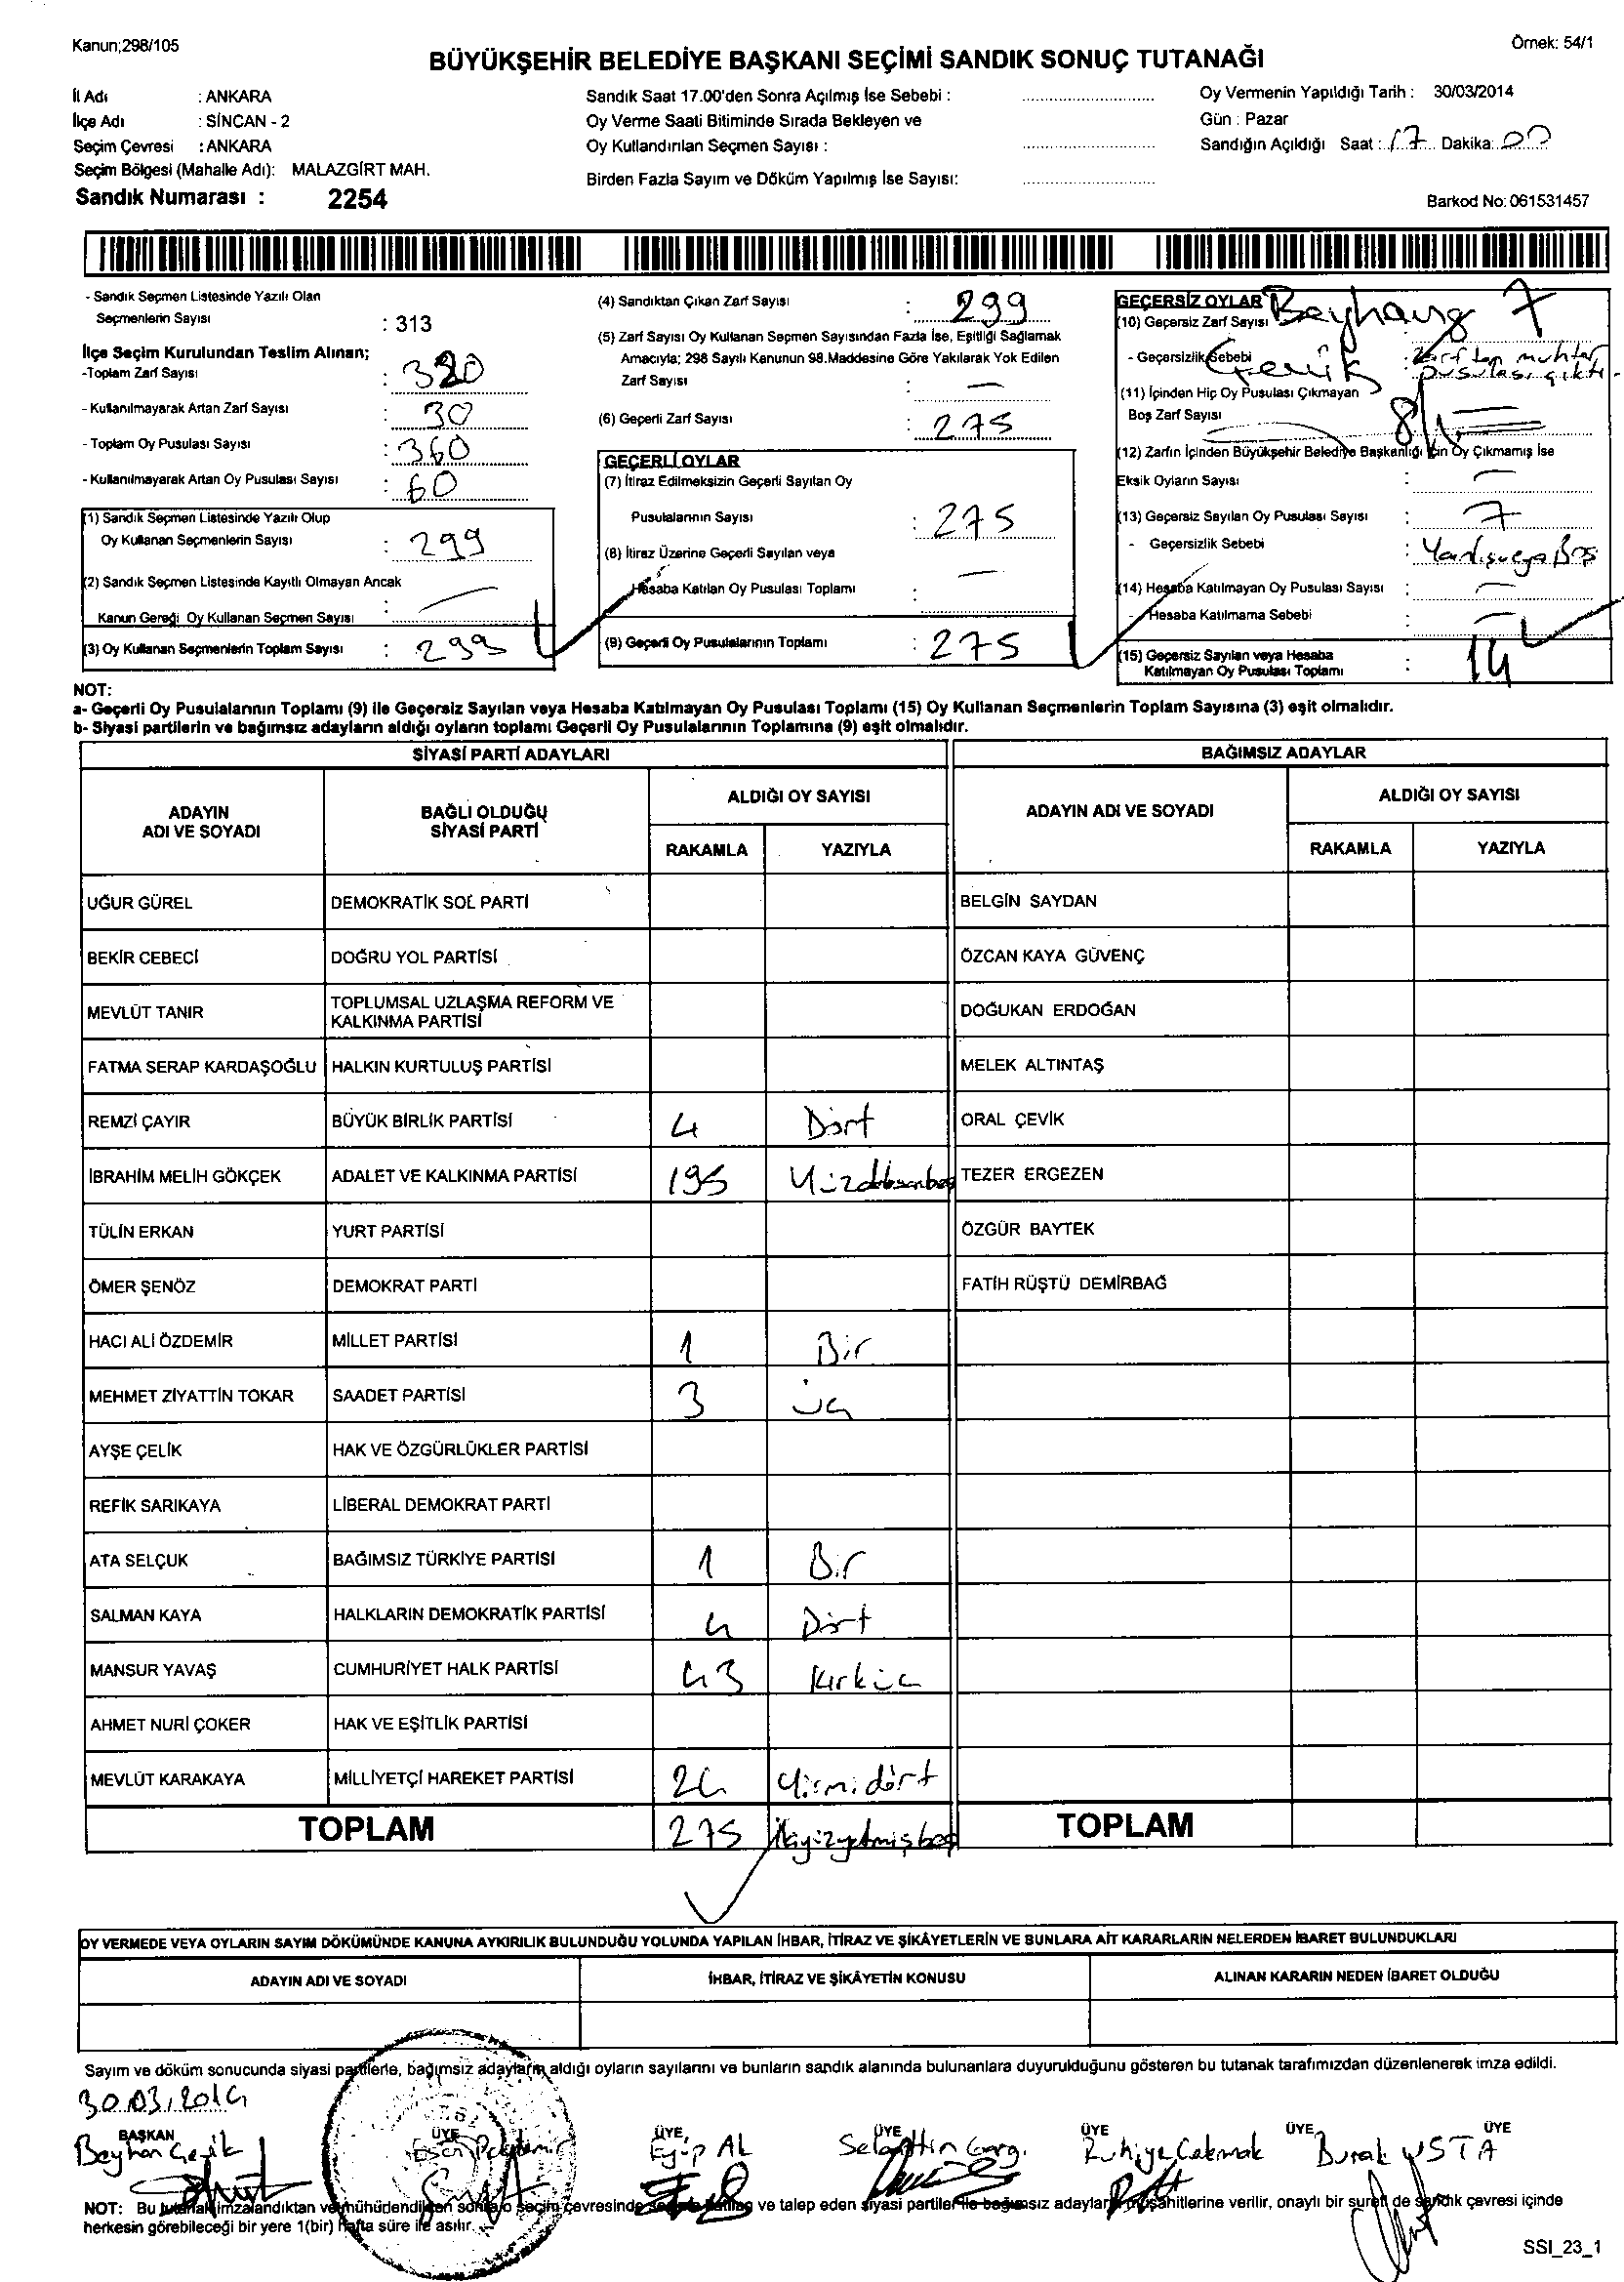 Kanun;298/105
Örnek: 54/1
BÜYÜKŞEHİR BELEDİYE BAŞKANI SEÇİMİ SANDIK SONUÇ TUTANAĞI
İl Adı : ANKARA
İlçe Adı : SİNCAN - 2
Seçim Çevresi : ANKARA
Seçim Bölgesi (Mahalle Adı): MALAZGİRT MAH.
Sandık Numarası : 2254
Sandık Saat 17.00'den Sonra Açılmış İse Sebebi :
Oy Verme Saati Bitiminde Sırada Bekleyen ve
Oy Kullandırılan Seçmen Sayısı :
Birden Fazla Sayım ve Döküm Yapılmış İse Sayısı:
Oy Vermenin Yapıldığı Tarih : 30/03/2014
Gün : Pazar
Sandığın Açıldığı Saat : 17 Dakika: 00
Barkod No: 061531457
- Sandık Seçmen Listesinde Yazılı Olan
Seçmenlerin Sayısı : 313
İlçe Seçim Kurulundan Teslim Alınan;
-Toplam Zarf Sayısı : 320
- Kullanılmayarak Artan Zarf Sayısı : 30
- Toplam Oy Pusulası Sayısı : 360
- Kullanılmayarak Artan Oy Pusulası Sayısı : 60
(1) Sandık Seçmen Listesinde Yazılı Olup
Oy Kullanan Seçmenlerin Sayısı : 299
(2) Sandık Seçmen Listesinde Kayıtlı Olmayan Ancak
Kanun Gereği Oy Kullanan Seçmen Sayısı : —
(3) Oy Kullanan Seçmenlerin Toplam Sayısı : 299
(4) Sandıktan Çıkan Zarf Sayısı : 299
(5) Zarf Sayısı Oy Kullanan Seçmen Sayısından Fazla İse, Eşitliği Sağlamak
Amacıyla; 298 Sayılı Kanunun 98.Maddesine Göre Yakılarak Yok Edilen
Zarf Sayısı : —
(6) Geçerli Zarf Sayısı : 275
GEÇERLİ OYLAR
(7) İtiraz Edilmeksizin Geçerli Sayılan Oy
Pusulalarının Sayısı : 275
(8) İtiraz Üzerine Geçerli Sayılan veya
Hesaba Katılan Oy Pusulası Toplamı : —
(9) Geçerli Oy Pusulalarının Toplamı : 275
GEÇERSİZ OYLAR Beyhan
(10) Geçersiz Zarf Sayısı 7
- Geçersizlik Sebebi : Zarftan muhtar
pusulası çıktı
(11) İçinden Hiç Oy Pusulası Çıkmayan
Boş Zarf Sayısı
(12) Zarfın İçinden Büyükşehir Belediye Başkanlığı İçin Oy Çıkmamış İse
Eksik Oyların Sayısı : —
(13) Geçersiz Sayılan Oy Pusulası Sayısı : 7
- Geçersizlik Sebebi :
(14) Hesaba Katılmayan Oy Pusulası Sayısı : —
- Hesaba Katılmama Sebebi : —
(15) Geçersiz Sayılan veya Hesaba
Katılmayan Oy Pusulası Toplamı : 14
NOT:
a- Geçerli Oy Pusulalarının Toplamı (9) ile Geçersiz Sayılan veya Hesaba Katılmayan Oy Pusulası Toplamı (15) Oy Kullanan Seçmenlerin Toplam Sayısına (3) eşit olmalıdır.
b- Siyasi partilerin ve bağımsız adayların aldığı oyların toplamı Geçerli Oy Pusulalarının Toplamına (9) eşit olmalıdır.
SİYASİ PARTİ ADAYLARI
BAĞIMSIZ ADAYLAR
ADAYIN
ADI VE SOYADI
BAĞLI OLDUĞU
SİYASİ PARTİ
ALDIĞI OY SAYISI
RAKAMLA YAZIYLA
ADAYIN ADI VE SOYADI
ALDIĞI OY SAYISI
RAKAMLA YAZIYLA
UĞUR GÜREL DEMOKRATİK SOL PARTİ BELGİN SAYDAN
BEKİR CEBECİ DOĞRU YOL PARTİSİ ÖZCAN KAYA GÜVENÇ
MEVLÜT TANIR TOPLUMSAL UZLAŞMA REFORM VE
KALKINMA PARTİSİ DOĞUKAN ERDOĞAN
FATMA SERAP KARDAŞOĞLU HALKIN KURTULUŞ PARTİSİ MELEK ALTINTAŞ
REMZİ ÇAYIR BÜYÜK BİRLİK PARTİSİ 4 Dört ORAL ÇEVİK
İBRAHİM MELİH GÖKÇEK ADALET VE KALKINMA PARTİSİ 195 Yüzdoksanbeş TEZER ERGEZEN
TÜLİN ERKAN YURT PARTİSİ ÖZGÜR BAYTEK
ÖMER ŞENÖZ DEMOKRAT PARTİ FATİH RÜŞTÜ DEMİRBAĞ
HACI ALİ ÖZDEMİR MİLLET PARTİSİ 1 Bir
MEHMET ZİYATTİN TOKAR SAADET PARTİSİ 3 üç
AYŞE ÇELİK HAK VE ÖZGÜRLÜKLER PARTİSİ
REFİK SARIKAYA LİBERAL DEMOKRAT PARTİ
ATA SELÇUK BAĞIMSIZ TÜRKİYE PARTİSİ 1 Bir
SALMAN KAYA HALKLARIN DEMOKRATİK PARTİSİ 4 Dört
MANSUR YAVAŞ CUMHURİYET HALK PARTİSİ 43 Kırküç
AHMET NURİ ÇOKER HAK VE EŞİTLİK PARTİSİ
MEVLÜT KARAKAYA MİLLİYETÇİ HAREKET PARTİSİ 24 Yirmidört
TOPLAM 275 İkiyüzyetmişbeş TOPLAM
OY VERMEDE VEYA OYLARIN SAYIM DÖKÜMÜNDE KANUNA AYKIRILIK BULUNDUĞU YOLUNDA YAPILAN İHBAR, İTİRAZ VE ŞİKÂYETLERİN VE BUNLARA AİT KARARLARIN NELERDEN İBARET BULUNDUKLARI
ADAYIN ADI VE SOYADI İHBAR, İTİRAZ VE ŞİKÂYETİN KONUSU ALINAN KARARIN NEDEN İBARET OLDUĞU
Sayım ve döküm sonucunda siyasi partilerle, bağımsız adayların aldığı oyların sayılarını ve bunların sandık alanında bulunanlara duyurulduğunu gösteren bu tutanak tarafımızdan düzenlenerek imza edildi.
30.03.2014
BAŞKAN ÜYE ÜYE ÜYE ÜYE ÜYE ÜYE
Beyhan Eyüp AL Selahttin Ruhiye Cakmak Burak USTA
NOT: Bu tutanak imzalandıktan ve mühürlendikten sonra o seçim çevresinde seçime katılan ve talep eden siyasi partiler ile bağımsız adayların müşahitlerine verilir, onaylı bir sureti de sandık çevresi içinde
herkesin görebileceği bir yere 1(bir) hafta süre ile asılır.
SSI_23_1